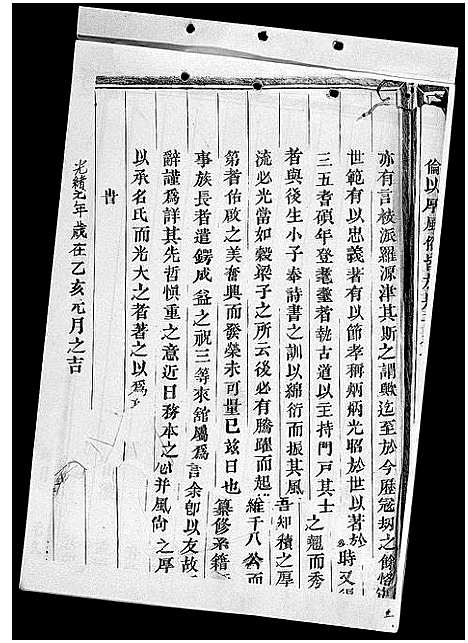 倫以厚風俗皆於是
亦有言枝派羅源津其斯之謂歟迄至於今歷冠㓜之餘
世範有以忠義著有以節孝稱炳炳光昭於世以著於時又
三五耆碩年登耄耋者執古道以主持門戸其士之翹而秀
者與後生小子奉詩書之訓以綿衍而振其風吾知積之厚
流必光當如穀梁子之所云後必有騰躍而起維千八公而
第者佑啟之美奮興而發榮未可量已兹日也纂修系籍
事族長者遣鍔成益之祝三等來舘屬爲言余卽以友故
辭謹爲詳其先哲慎重之意近日務本之心并風尚之厚
以承名氏而光大之者著之以爲
旹
光緒元年歲在乙亥元月之吉